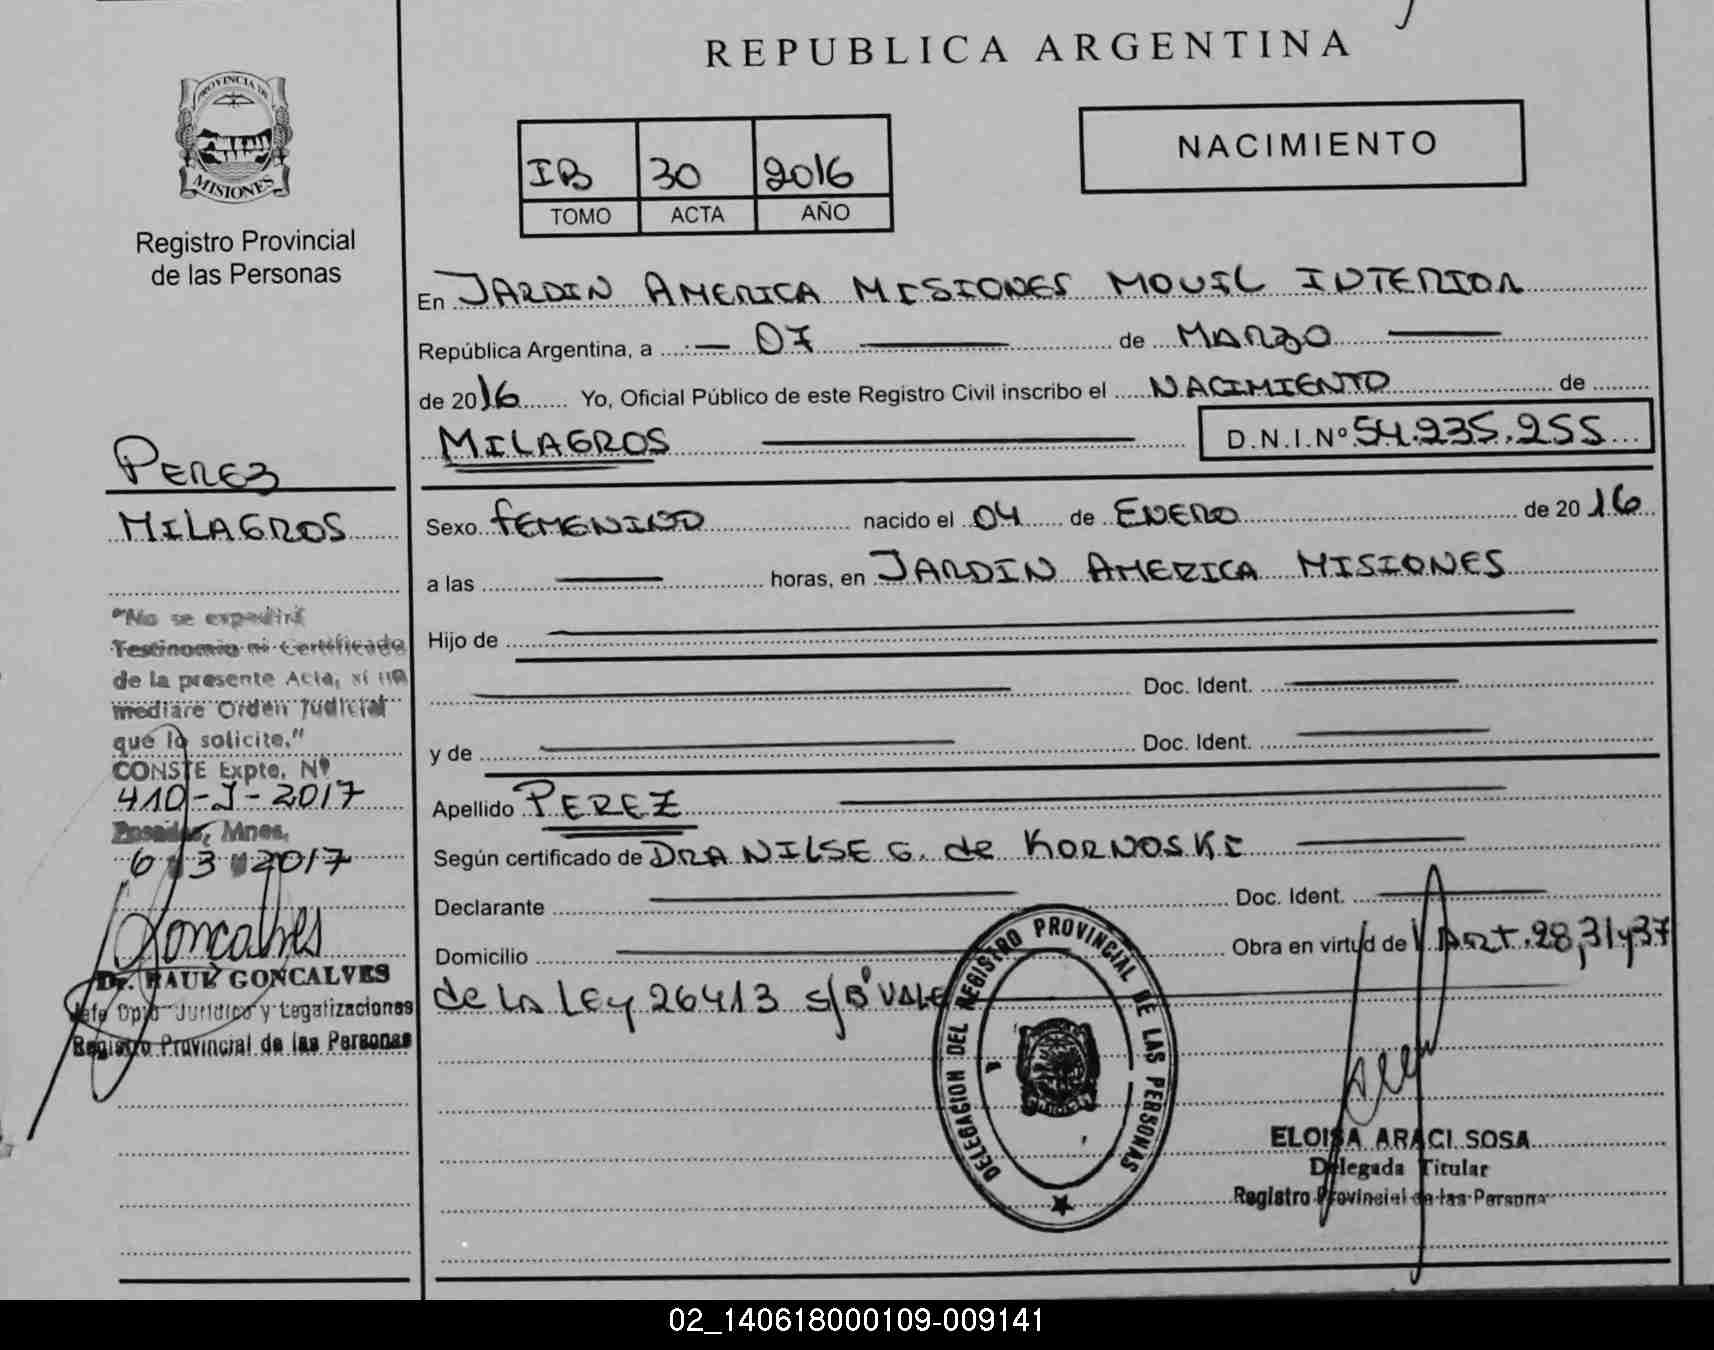 REPUBLICA ARGENTINA
PROVINCIA DE
MISIONES
Registro Provincial
de las Personas
IB 30 2016
TOMO ACTA AÑO
NACIMIENTO
En JARDIN AMERICA MISIONES MOVIL INTERIOR
República Argentina, a 07 de MARZO
de 2016 Yo, Oficial Público de este Registro Civil inscribo el NACIMIENTO de
MILAGROS D.N.I.Nº 54.235.255
PEREZ
MILAGROS
"No se expedirá
Testimonio ni Certificado
de la presente Acta, si no
mediare Orden Judicial
que lo solicite."
CONSTE Expte. Nº
410-J-2017
Posadas, Mnes,
6 3 2017
Goncalves
Dr. RAUL GONCALVES
Jefe Dpto Jurídico y Legalizaciones
Registro Provincial de las Personas
Sexo FEMENINO nacido el 04 de ENERO de 2016
a las horas, en JARDIN AMERICA MISIONES
Hijo de
Doc. Ident.
y de Doc. Ident.
Apellido PEREZ
Según certificado de DRA NILSE G. de KORNOSKI
Declarante Doc. Ident.
Domicilio Obra en virtud de Art. 28,31y37
de LA LEY 26413 S/Bº VALE
DELEGACION DEL REGISTRO PROVINCIAL DE LAS PERSONAS
ELOISA ARACI SOSA
Delegada Titular
Registro Provincial de las Persona
02_140618000109-009141